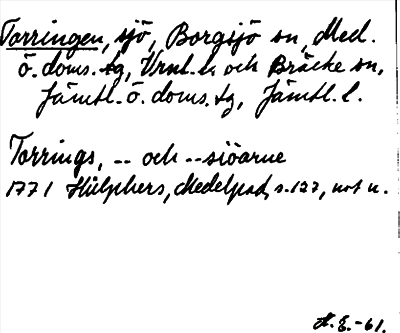 Torringen, sjö, Borgsjö sn, Med.
ö. doms. tg, Vrnl. l. och Bräcke sn,
Jämtl. ö. doms. tg, Jämtl. l.
Torrings, -- och --siöarne
1771 Hülphers, Medelpad, s. 127, not u.
H. E. -61.